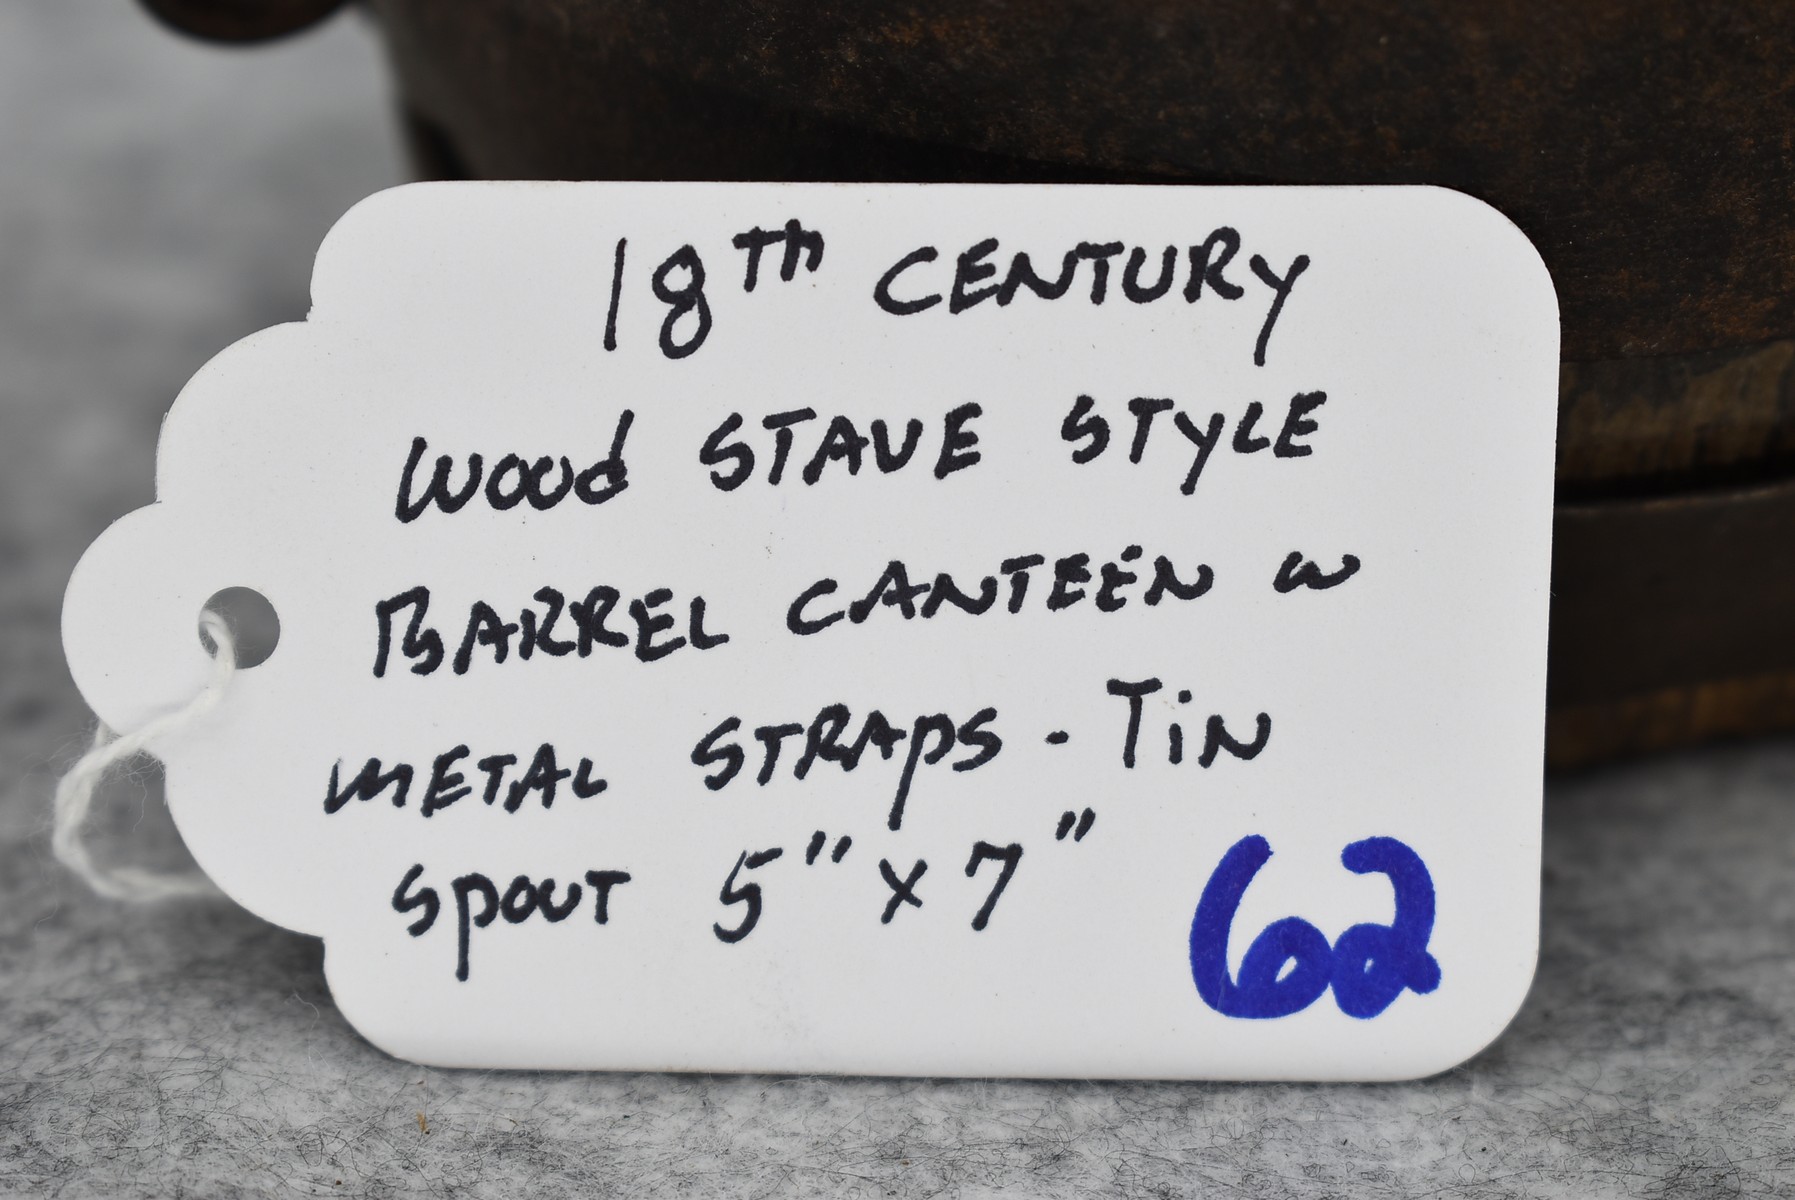 18th CENTURY
Wood STAVE STYLE
BARREL CANTEEN w
METAL STRAPS - TiN
SPOUT 5" x 7"
62